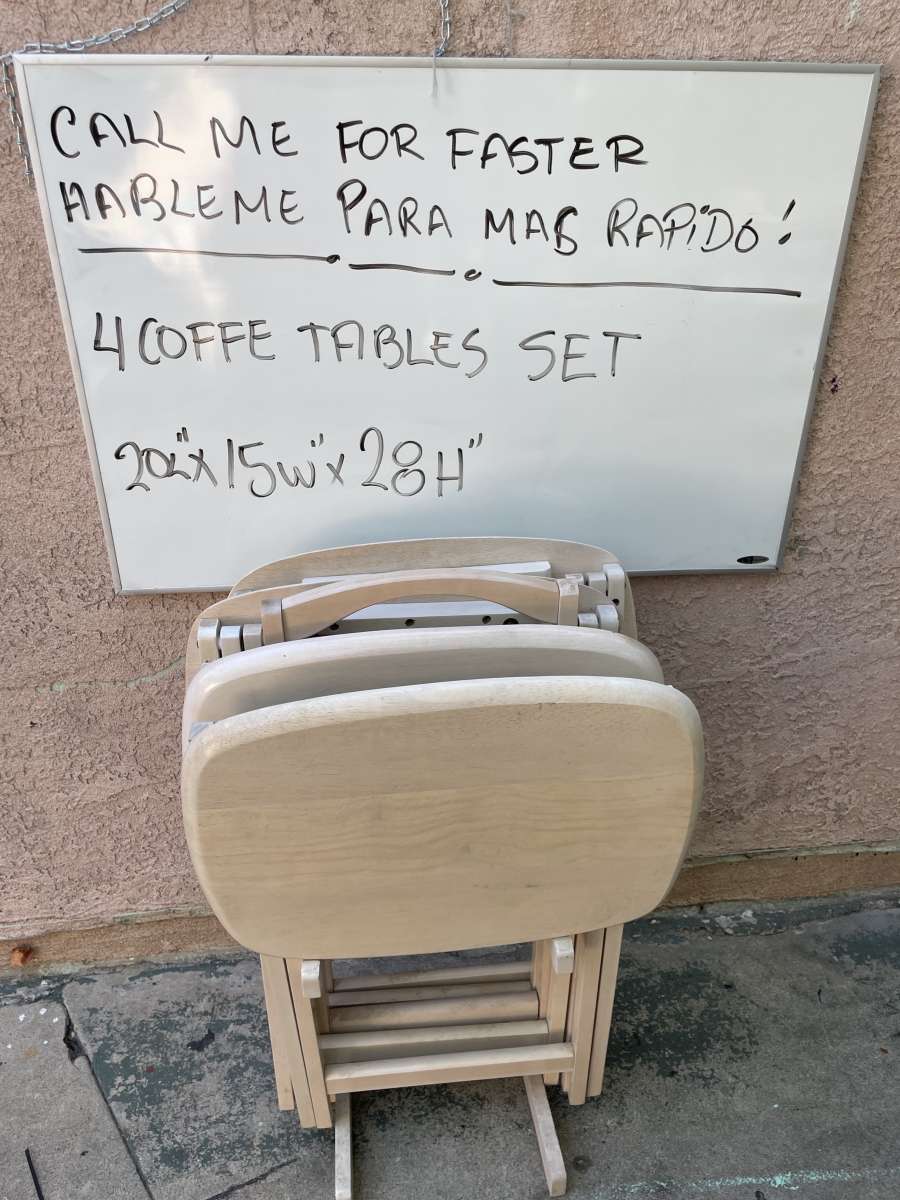 CALL ME FOR FASTER
HABLEME PARA MAS RAPIDO!
4 COFFE TABLES SET
20L"X 15W"X 28H"